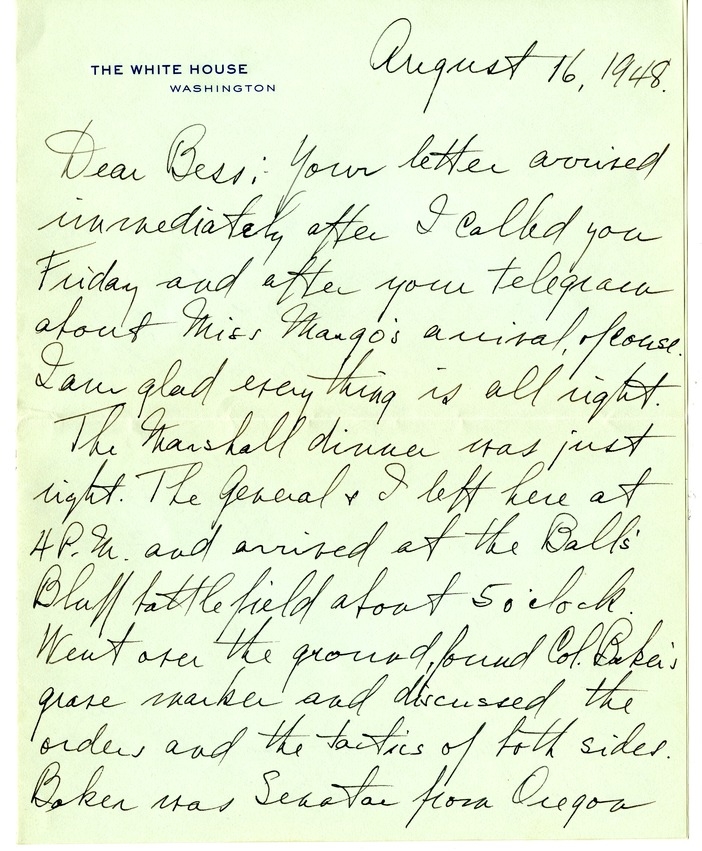 THE WHITE HOUSE
WASHINGTON
August 16, 1948.
Dear Bess: Your letter arrived
immediately after I called you
Friday and after your telegram
about Miss Margo's arrival, of couse.
I am glad everything is all right.
The Marshall dinner was just
right. The General & I left here at
4 P.M. and arrived at the Ball's
Bluff battlefield about 5 o'clock.
Went over the ground, found Col. Baker's
grave marker and discussed the
orders and the tactics of both sides.
Baker was Senator from Oregon